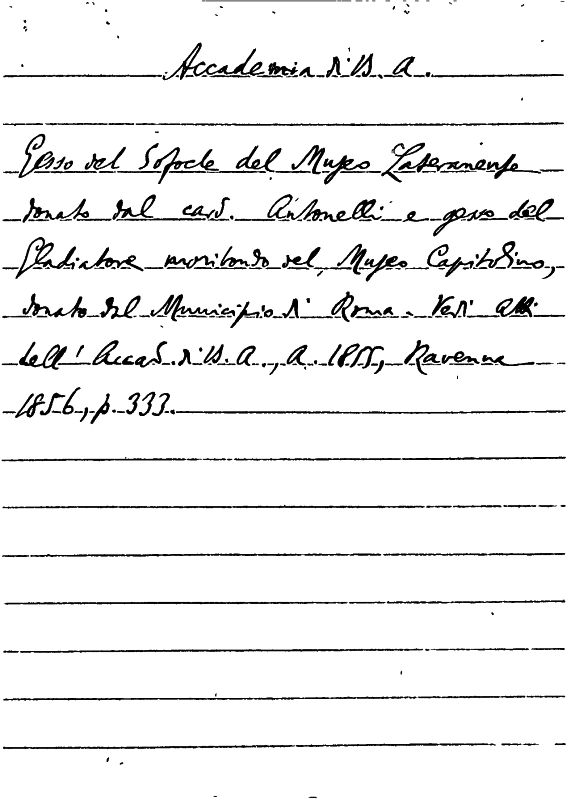 Accademia di B. A.
Gesso del Sofocle del Museo Lateranense
donato dal card. Antonelli e gesso del
Gladiatore moribondo del Museo Capitolino,
donato dal Municipio di Roma. Vedi Atti
dell'Accad. di B. A., A. 1855, Ravenna
1856, p. 333.